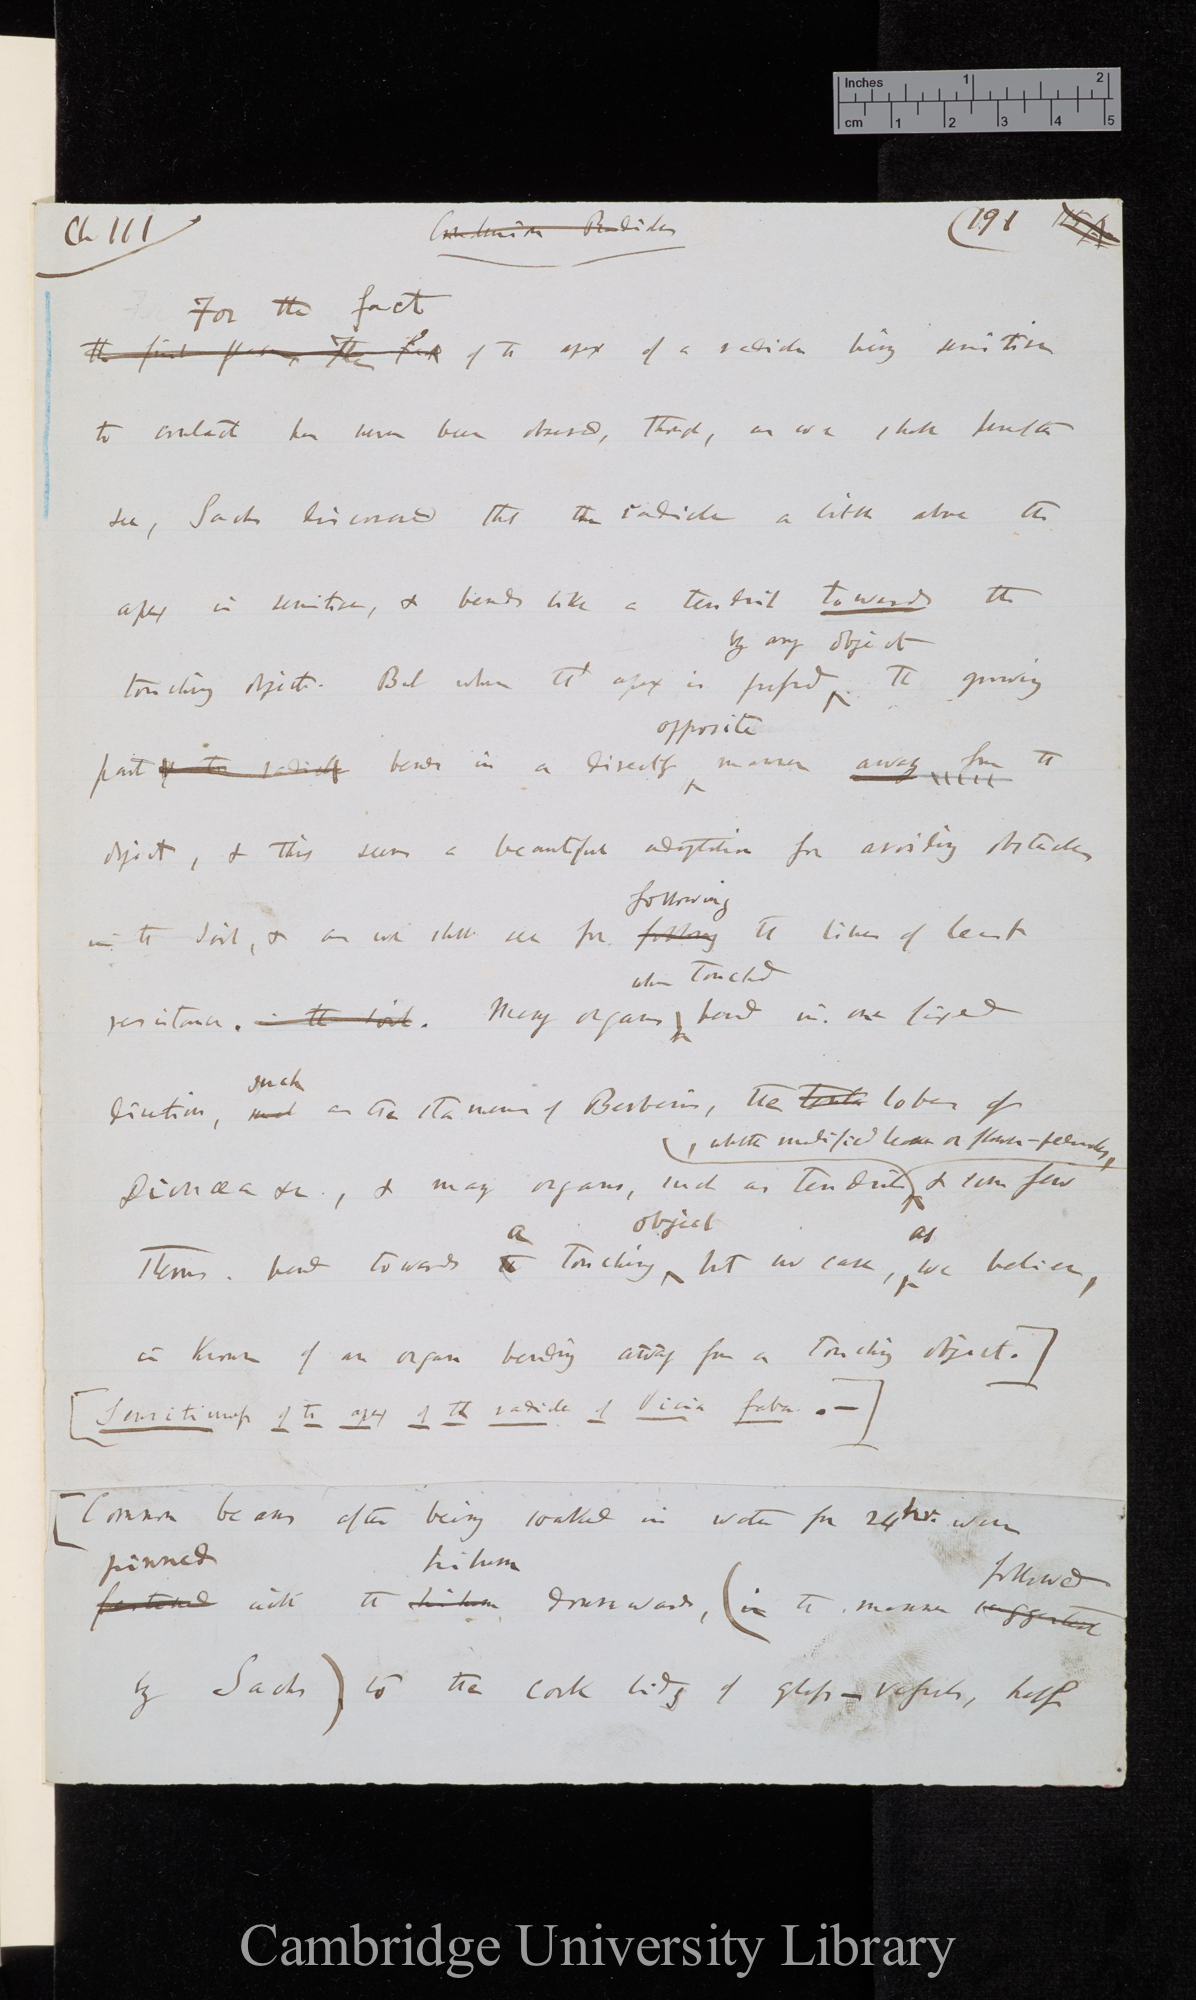 Inches 1 2
cm 1 2 3 4 5
Ch III
Radicles
(191
For the fact
of the apex of a radicle being sensitive
to contact has never been observed, though, as we shall hereafter
see, Sachs discovered that the radicle a little above the
apex is sensitive, & bends like a tendril towards the
by any object
touching object. But when the apex is pressed, the growing
opposite
part of the radicle bends in a directly manner away from the
object, & this seems a beautiful adaptation for avoiding obstacles
following
in the soil, & as we shall see for the lines of least
when touched
resistance. in the soil. Many organs bend in one fixed
such
direction, as the stamens of Berberis, the lobes of
, whether modified leaves or flower-peduncles,
Dionæa &c., & many organs, such as tendrils & some few
a object as
stems. bend towards the touching, but no case, we believe,
is known of an organ bending away from a touching object.]
[Sensitiveness of the apex of the radicle of Vicia faba.—]
[Common beans after being soaked in water for 24 hrs. were
pinned hilum followed
fastened with the hilum downwards, (in the manner suggested
by Sachs) to the cork lids of glass-vessels, half
Cambridge University Library